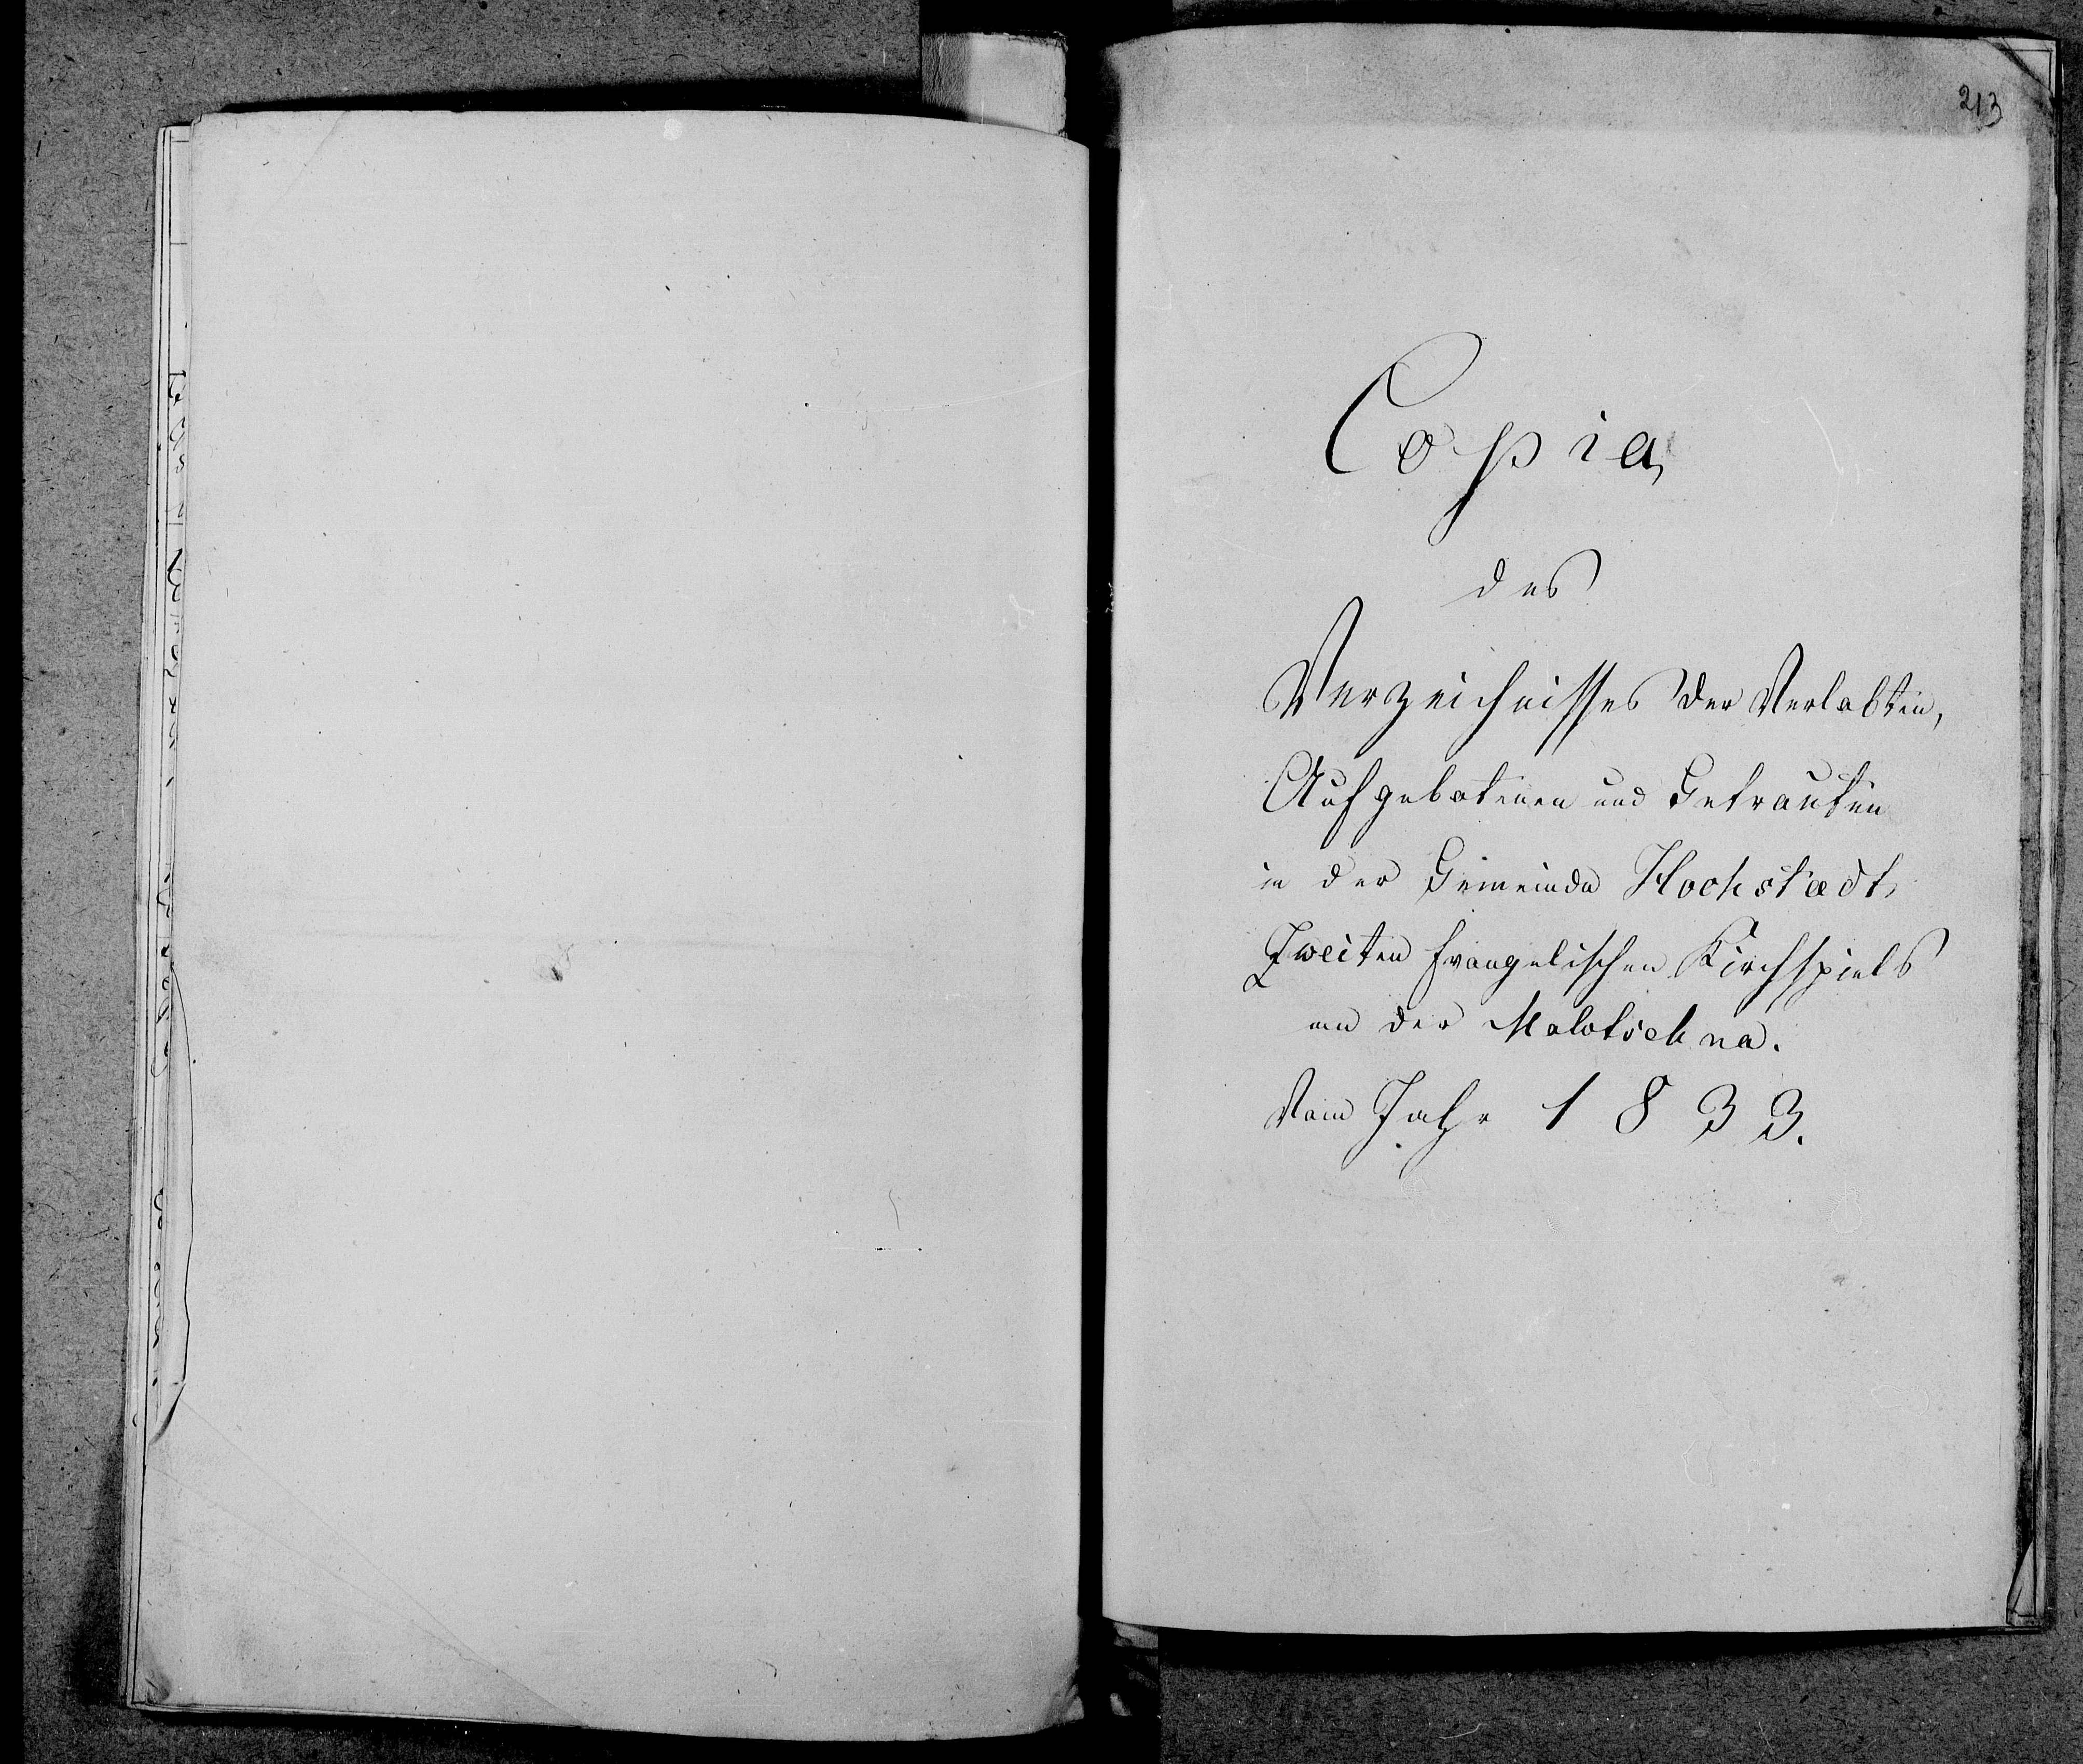 213
Copia
des
Verzeichnisses der Verlobten,
Aufgebotenen und Getrauten
in der Gemeinde Hochstædt,
Zweiten Evangelischen Kirchspiels
an der Molotschna.
Vom Jahr 1833.